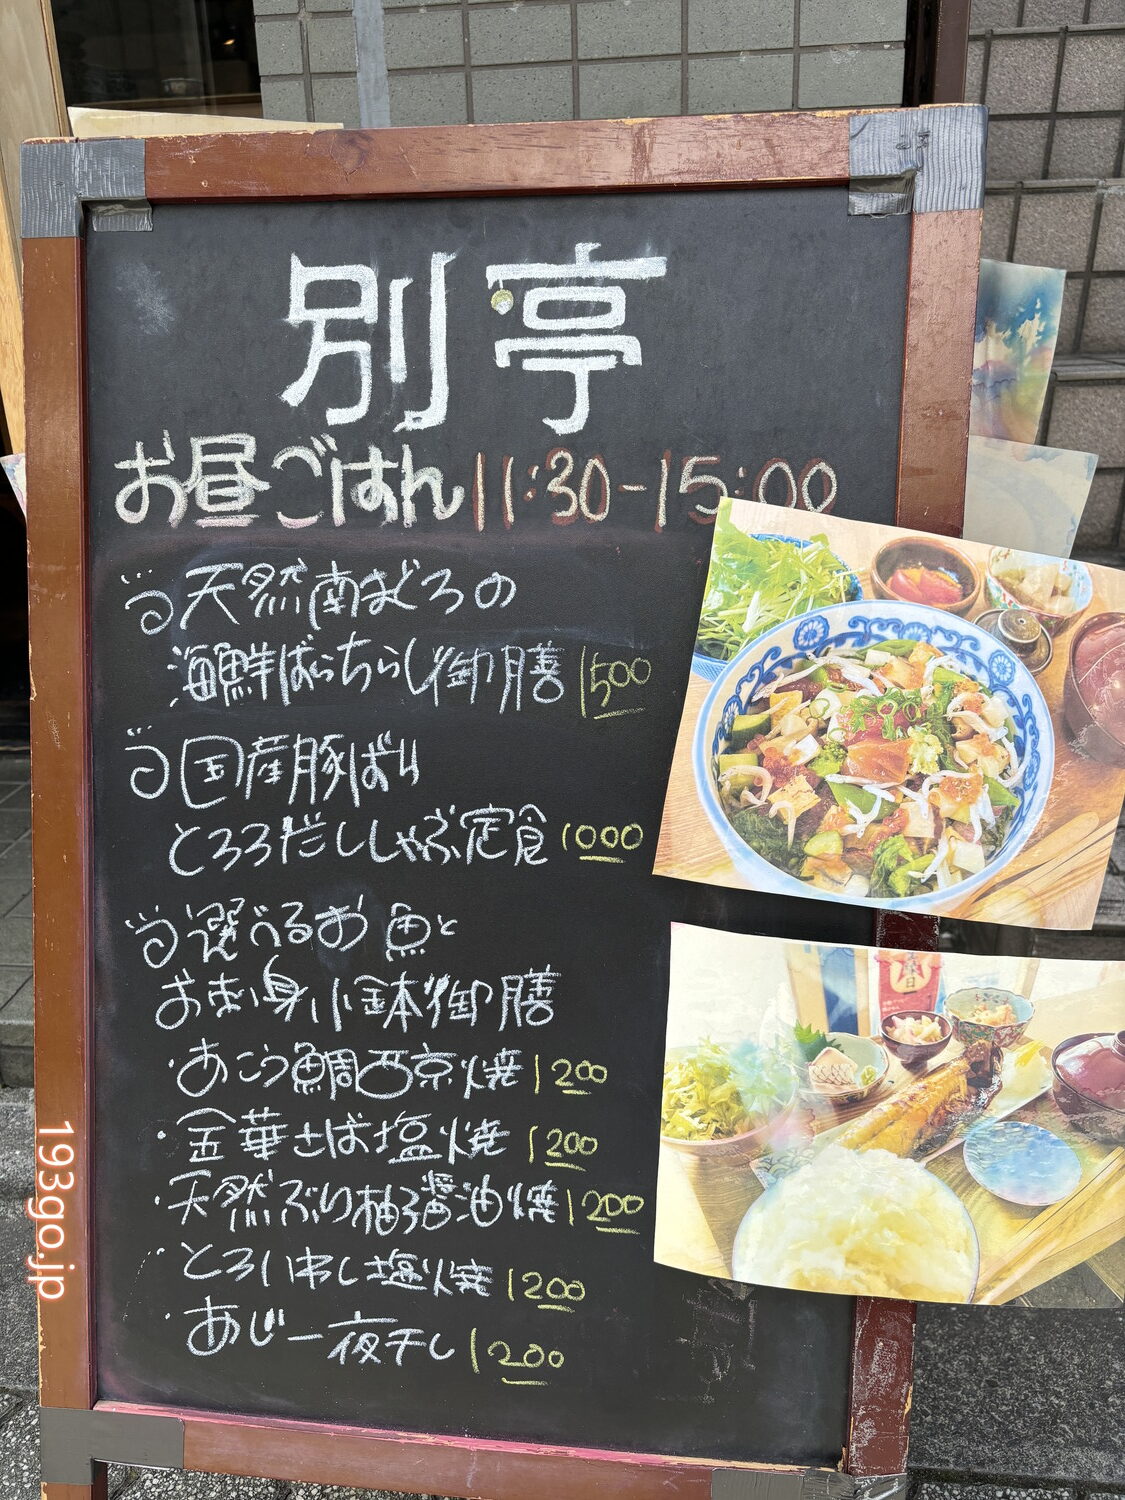 別亭
お昼ごはん 11:30-15:00
天然南まぐろの
海鮮ばらちらし御膳 1500
国産豚ばら
とろろだししゃぶ定食 1000
選べるお魚と
お刺身小鉢御膳
・あこう鯛西京焼 1200
・金華さば塩焼 1200
・天然ぶり柚子醤油焼 1200
・とろいわし塩焼 1200
・あじ一夜干し 1200
193go.jp